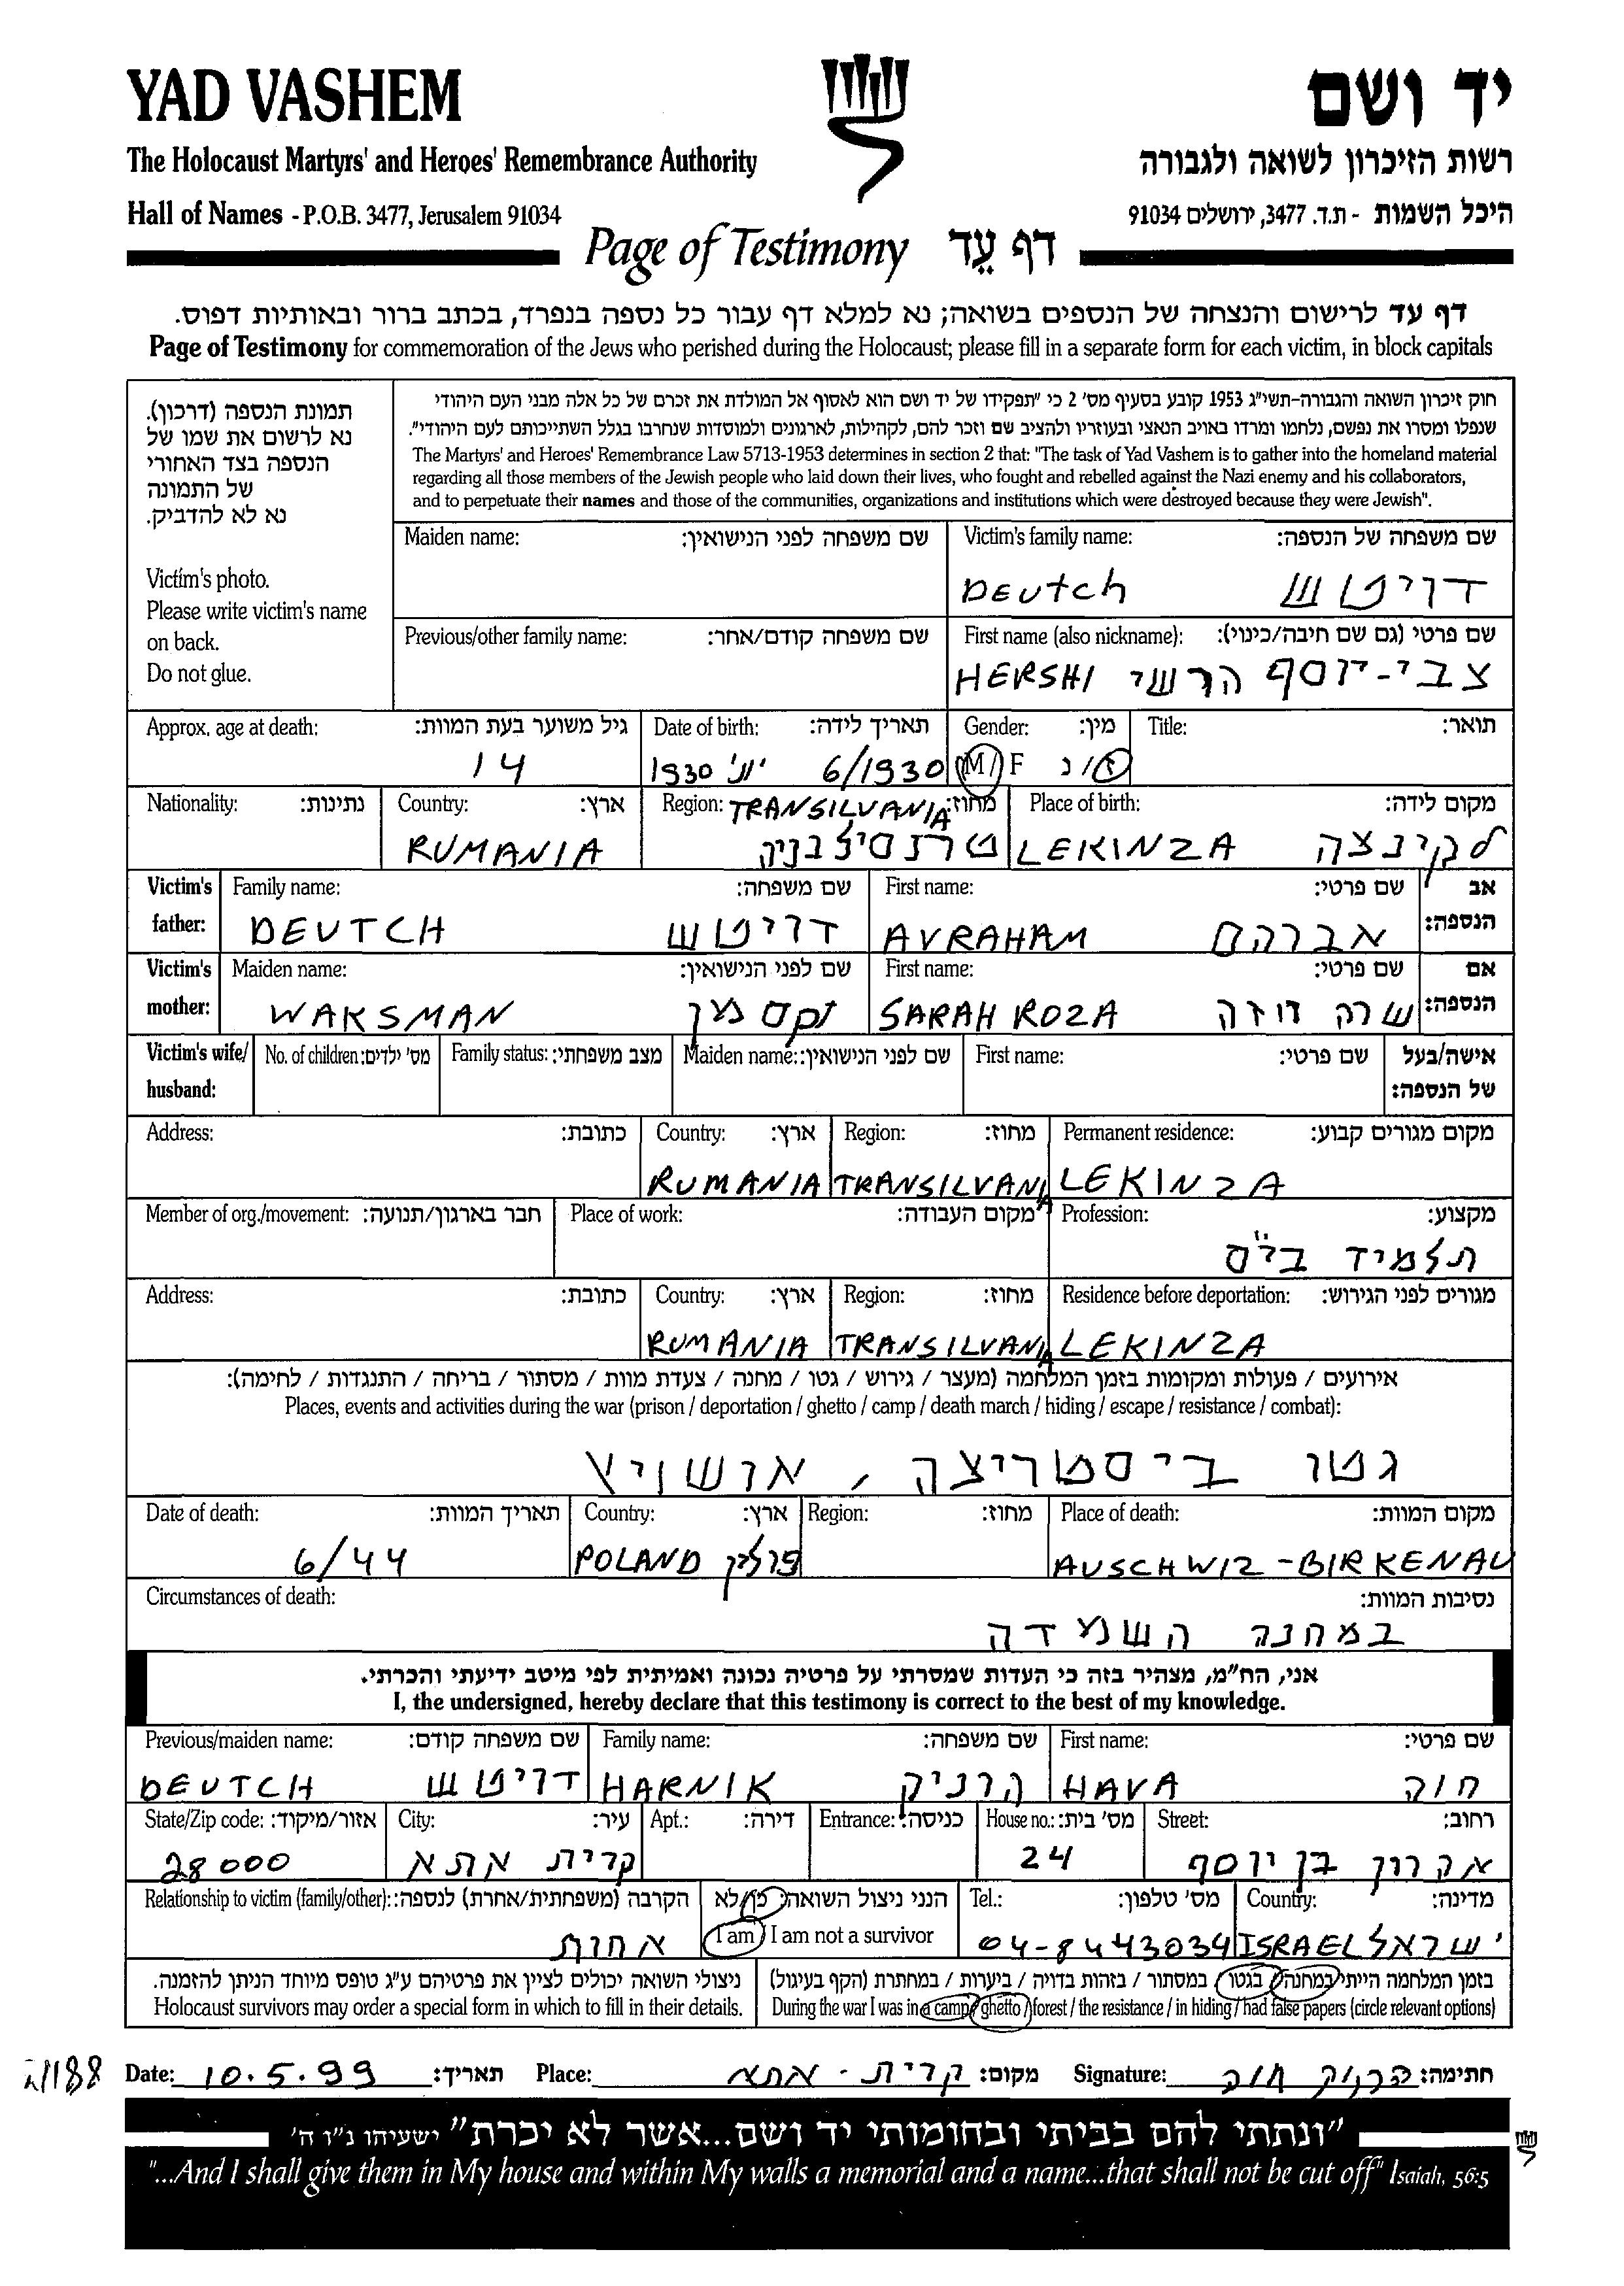 YAD VASHEM
יד ושם
The Holocaust Martyrs' and Heroes' Remembrance Authority
רשות הזיכרון לשואה ולגבורה
Hall of Names - P.O.B. 3477, Jerusalem 91034
היכל השמות - ת.ד. 3477, ירושלים 91034
Page of Testimony דף עֵד
דף עד לרישום והנצחה של הנספים בשואה; נא למלא דף עבור כל נספה בנפרד, בכתב ברור ובאותיות דפוס.
Page of Testimony for commemoration of the Jews who perished during the Holocaust; please fill in a separate form for each victim, in block capitals
תמונת הנספה (דרכון).
נא לרשום את שמו של
הנספה בצד האחורי
של התמונה
נא לא להדביק.
Victim's photo.
Please write victim's name
on back.
Do not glue.
חוק זיכרון השואה והגבורה-תשי"ג 1953 קובע בסעיף מס' 2 כי "תפקידו של יד ושם הוא לאסוף אל המולדת את זכרם של כל אלה מבני העם היהודי
שנפלו ומסרו את נפשם, נלחמו ומרדו באויב הנאצי ובעוזריו ולהציב שם וזכר להם, לקהילות, לארגונים ולמוסדות שנחרבו בגלל השתייכותם לעם היהודי".
The Martyrs' and Heroes' Remembrance Law 5713-1953 determines in section 2 that: "The task of Yad Vashem is to gather into the homeland material
regarding all those members of the Jewish people who laid down their lives, who fought and rebelled against the Nazi enemy and his collaborators,
and to perpetuate their names and those of the communities, organizations and institutions which were destroyed because they were Jewish".
Maiden name: שם משפחה לפני הנישואין:
Victim's family name: שם משפחה של הנספה:
DEUTCH דויטש
Previous/other family name: שם משפחה קודם/אחר:
First name (also nickname): שם פרטי (גם שם חיבה/כינוי):
HERSHI צבי-יוסף הרשי
Approx. age at death: גיל משוער בעת המוות:
14
Date of birth: תאריך לידה:
יוני 1930 6/1930
Gender: מין:
M / F ז / נ
Title: תואר:
Nationality: נתינות:
Country: ארץ:
RUMANIA
Region: מחוז:
TRANSILVANIA
טרנסילבניה
Place of birth: מקום לידה:
LEKINZA לקינצה
Victim's father: אב הנספה:
Family name: שם משפחה:
DEUTCH דויטש
First name: שם פרטי:
AVRAHAM אברהם
Victim's mother: אם הנספה:
Maiden name: שם לפני הנישואין:
WAKSMAN וקסמן
First name: שם פרטי:
SARAH ROZA שרה רוזה
Victim's wife/ husband: אישה/בעל של הנספה:
No. of children: מס' ילדים:
Family status: מצב משפחתי:
Maiden name: שם לפני הנישואין:
First name: שם פרטי:
Address: כתובת:
Country: ארץ:
RUMANIA
Region: מחוז:
TRANSILVANIA
Permanent residence: מקום מגורים קבוע:
LEKINZA
Member of org./movement: חבר בארגון/תנועה:
Place of work: מקום העבודה:
Profession: מקצוע:
תלמיד בי"ס
Address: כתובת:
Country: ארץ:
RUMANIA
Region: מחוז:
TRANSILVANIA
Residence before deportation: מגורים לפני הגירוש:
LEKINZA
אירועים / פעולות ומקומות בזמן המלחמה (מעצר / גירוש / גטו / מחנה / צעדת מוות / מסתור / בריחה / התנגדות / לחימה):
Places, events and activities during the war (prison / deportation / ghetto / camp / death march / hiding / escape / resistance / combat):
גטו ביסטריצה, אושויץ
Date of death: תאריך המוות:
6/44
Country: ארץ:
POLAND פולין
Region: מחוז:
Place of death: מקום המוות:
AUSCHWIZ-BIRKENAU
Circumstances of death: נסיבות המוות:
במחנה השמדה
אני, הח"מ, מצהיר בזה כי העדות שמסרתי על פרטיה נכונה ואמיתית לפי מיטב ידיעתי והכרתי.
I, the undersigned, hereby declare that this testimony is correct to the best of my knowledge.
Previous/maiden name: שם משפחה קודם:
DEUTCH דויטש
Family name: שם משפחה:
HARNIK הרניק
First name: שם פרטי:
HAVA חוה
State/Zip code: אזור/מיקוד:
28000
City: עיר:
קרית אתא
Apt.: דירה:
Entrance: כניסה:
House no.: מס' בית:
24
Street: רחוב:
אהרון בן יוסף
Relationship to victim (family/other): הקרבה (משפחתית/אחרת) לנספה:
אחות
הנני ניצול השואה: כן/לא
I am / I am not a survivor
Tel.: מס' טלפון:
04-8443034
Country: מדינה:
ISRAEL ישראל
ניצולי השואה יכולים לציין את פרטיהם ע"ג טופס מיוחד הניתן להזמנה.
Holocaust survivors may order a special form in which to fill in their details.
בזמן המלחמה הייתי במחנה / בגטו / במסתור / בזהות בדויה / ביערות / במחתרת (הקף בעיגול)
During the war I was in a camp / ghetto / forest / the resistance / in hiding / had false papers (circle relevant options)
Date: 10.5.99 תאריך:
Place: קרית - אתא מקום:
Signature: הרניק חוה חתימה:
"ונתתי להם בביתי ובחומותי יד ושם...אשר לא יכרת" ישעיהו נ"ו ה'
"...And I shall give them in My house and within My walls a memorial and a name...that shall not be cut off" Isaiah, 56:5